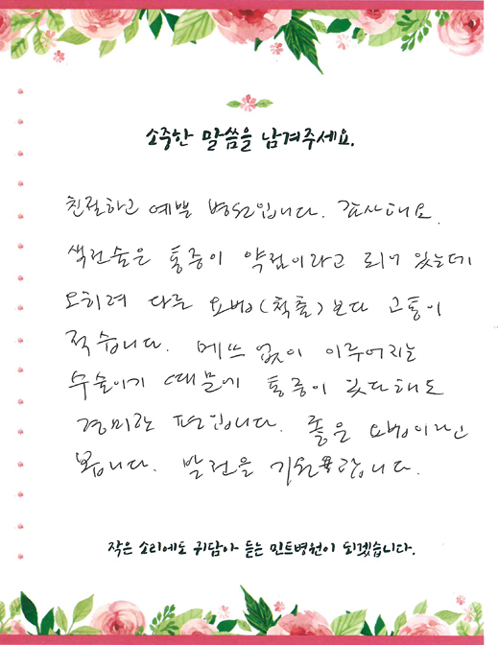 소중한 말씀을 남겨주세요.
친절하고 예쁜 병원입니다. 감사해요.
색전술은 통증이 약점이라고 되어 있는데
오히려 다른 요법(적출)보다 고통이
적습니다. 메쓰 없이 이루어지는
수술이기 때문에 통증이 있다해도
경미한 편입니다. 좋은 요법이라고
봅니다. 발전을 기원합니다.
작은 소리에도 귀담아 듣는 민트병원이 되겠습니다.